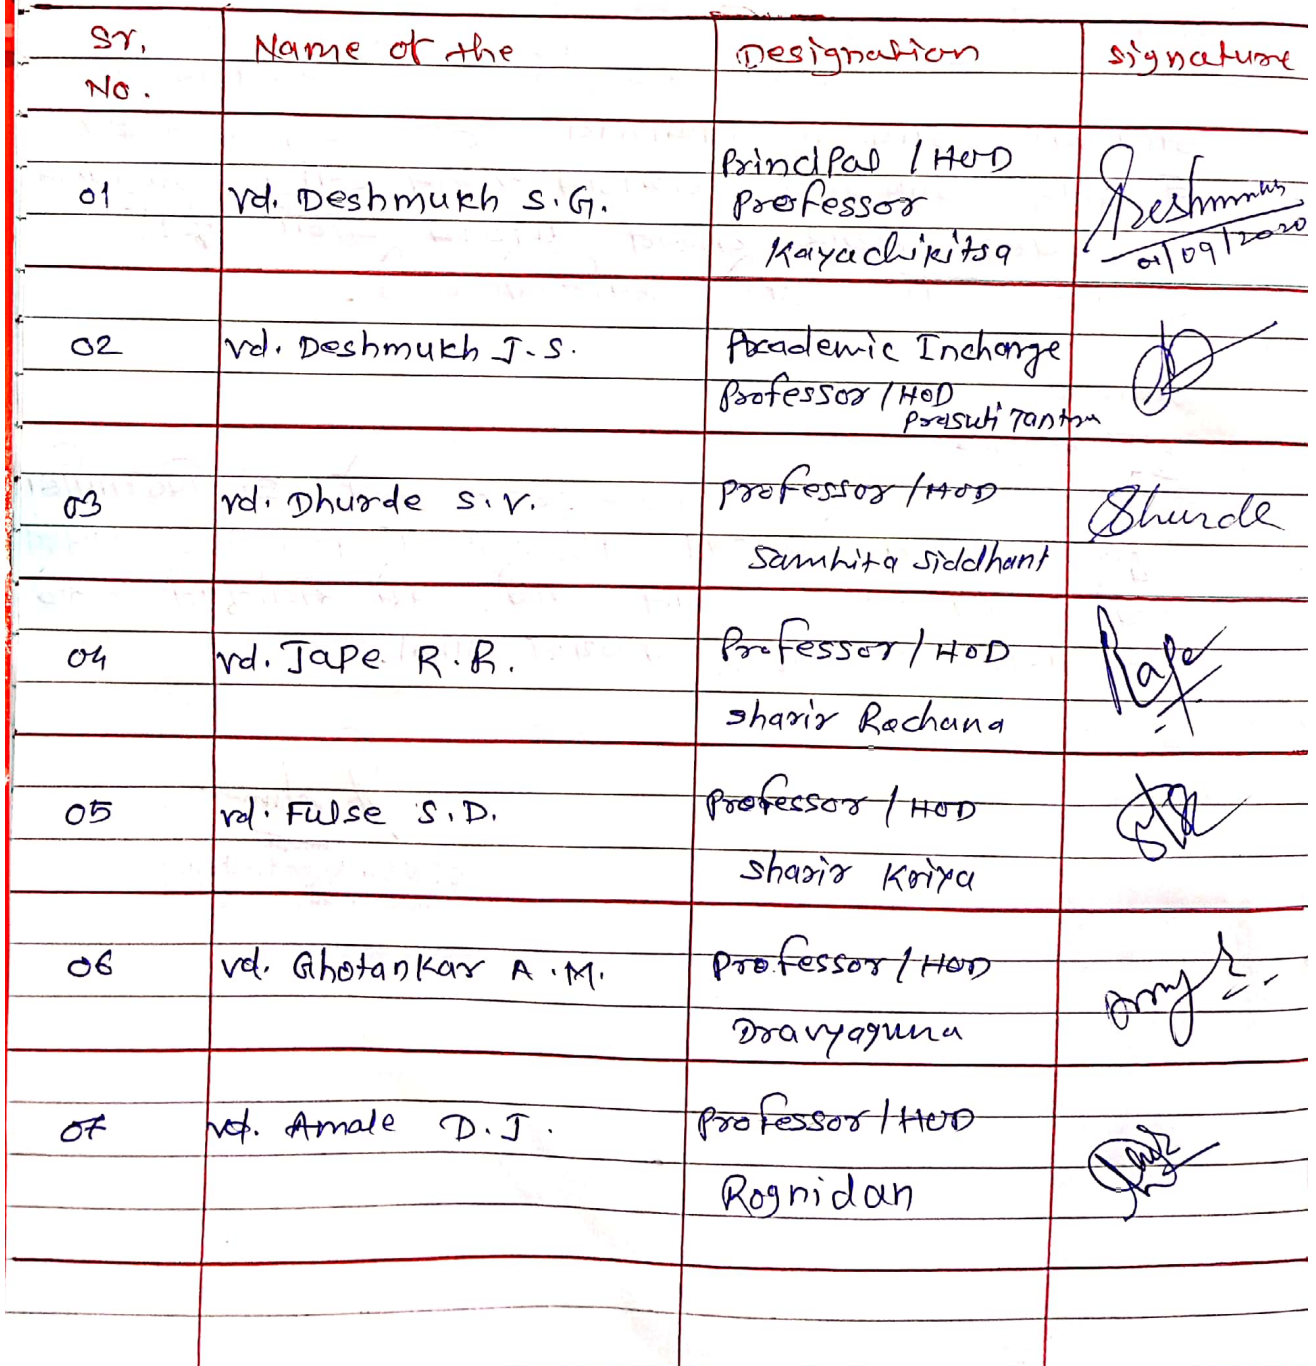 Sr. Name of the Designation Signature
No.
Principal / HOD
01 Vd. Deshmukh S.G. Professor Deshmukh
Kayachikitsa 01/09/2020
02 Vd. Deshmukh J.S. Academic Incharge
Professor / HOD
Prasuti Tantra
03 Vd. Dhurde S.V. Professor / HOD Dhurde
Samhita Siddhant
04 Vd. Jape R.R. Professor / HOD
Sharir Rachana
05 Vd. Fulse S.D. Professor / HOD
Sharir Kriya
06 Vd. Ghotankar A.M. Professor / HOD
Dravyaguna
07 Vd. Amale D.J. Professor / HOD
Rognidan